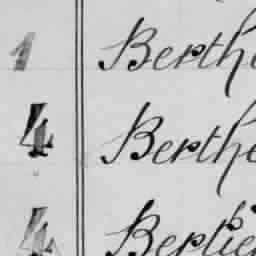 1 Berthe
4 Berthe
4